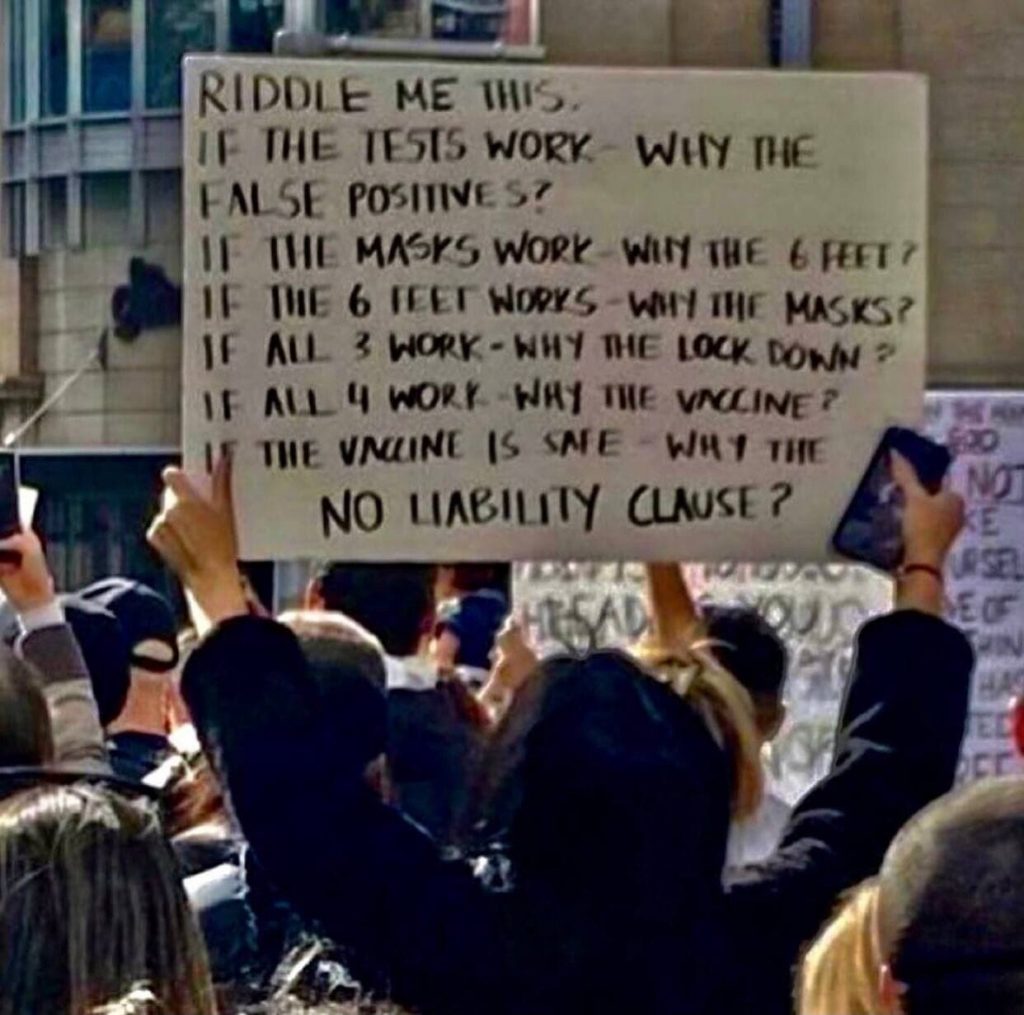 RIDDLE ME THIS:
IF THE TESTS WORK - WHY THE
FALSE POSITIVES?
IF THE MASKS WORK - WHY THE 6 FEET?
IF THE 6 FEET WORKS - WHY THE MASKS?
IF ALL 3 WORK - WHY THE LOCK DOWN?
IF ALL 4 WORK - WHY THE VACCINE?
IF THE VACCINE IS SAFE - WHY THE
NO LIABILITY CLAUSE?
NOT
OF